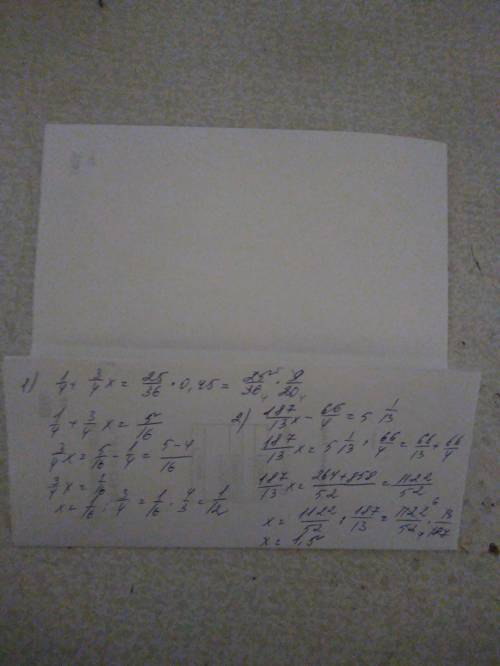 1) 1/4 + 3/4 x = 25/36 · 0,45 = 25/36 · 9/20
1/4 + 3/4 x = 5/16
3/4 x = 5/16 - 1/4 = (5-4)/16
3/4 x = 1/16
x = 1/16 : 3/4 = 1/16 · 4/3 = 1/12
2) 187/13 x - 66/4 = 5 1/13
187/13 x = 5 1/13 + 66/4 = 66/13 + 66/4
187/13 x = (264+858)/52 = 1122/52
x = 1122/52 : 187/13 = 1122/52 · 13/187
x = 1,5